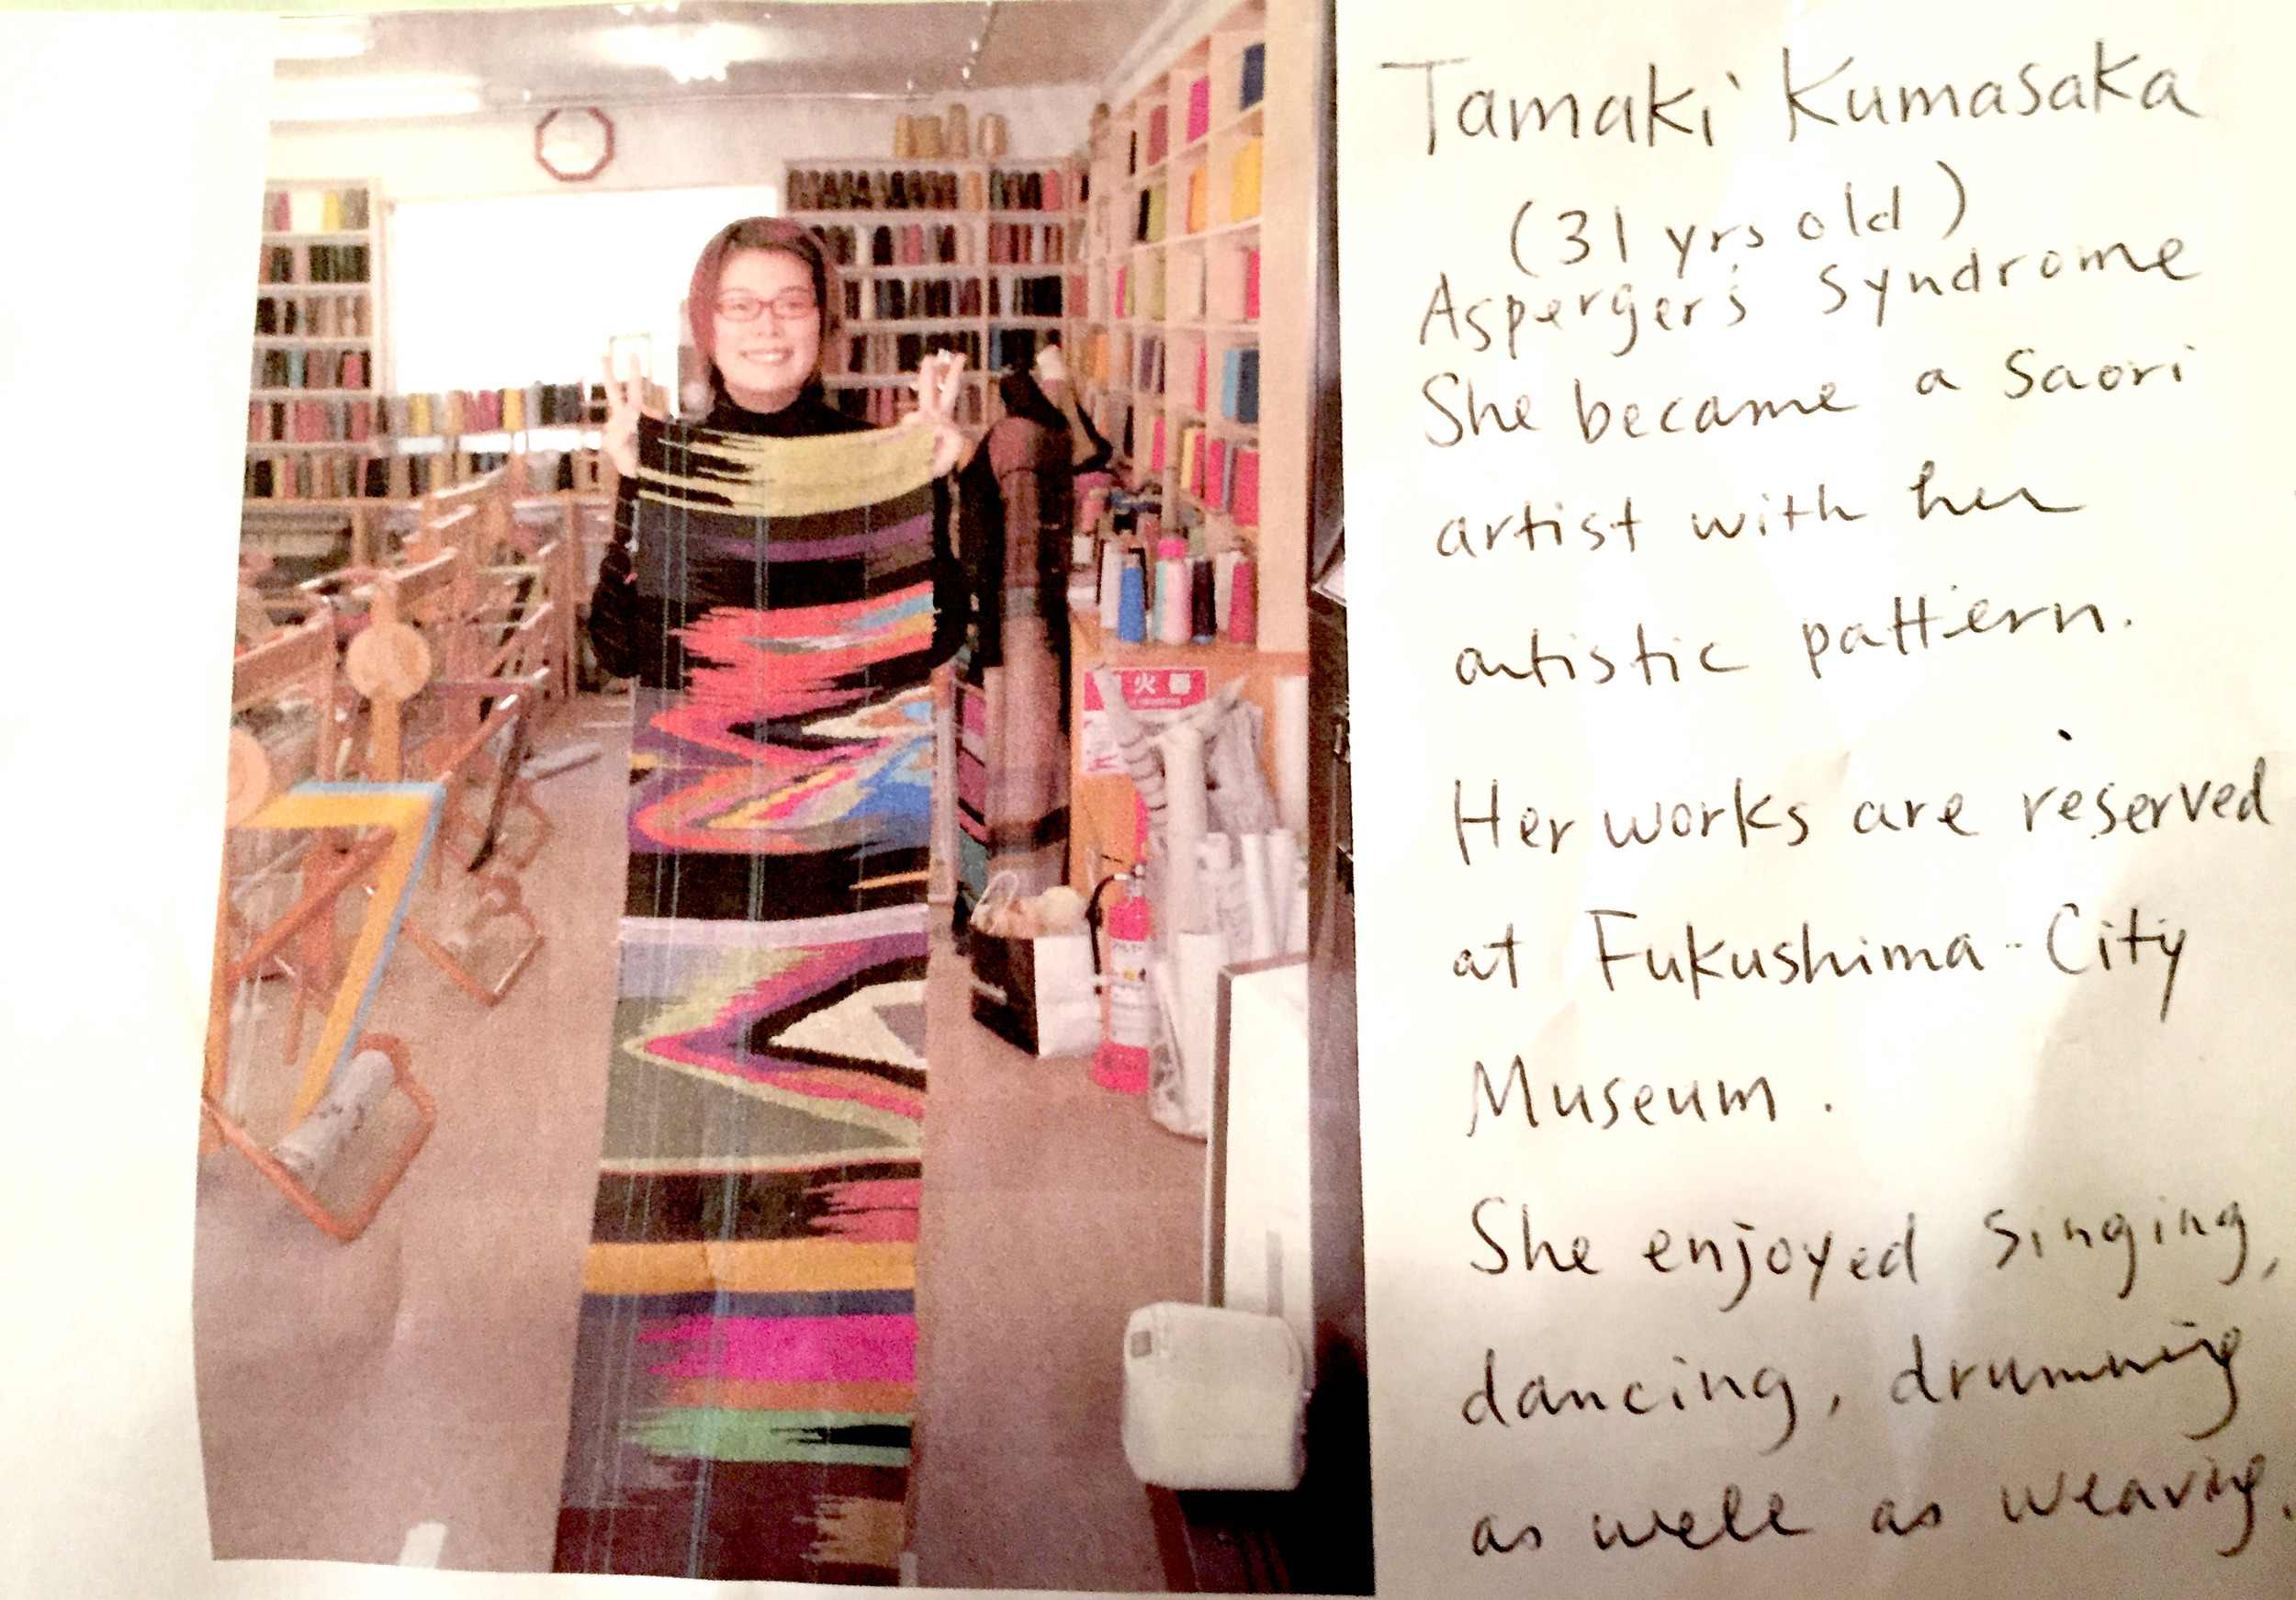 Tamaki Kumasaka
(31 yrs old)
Asperger's Syndrome
She became a Saori
artist with her
artistic pattern.
Her works are reserved
at Fukushima-City
Museum.
She enjoyed singing,
dancing, drumming
as well as weaving.
火器